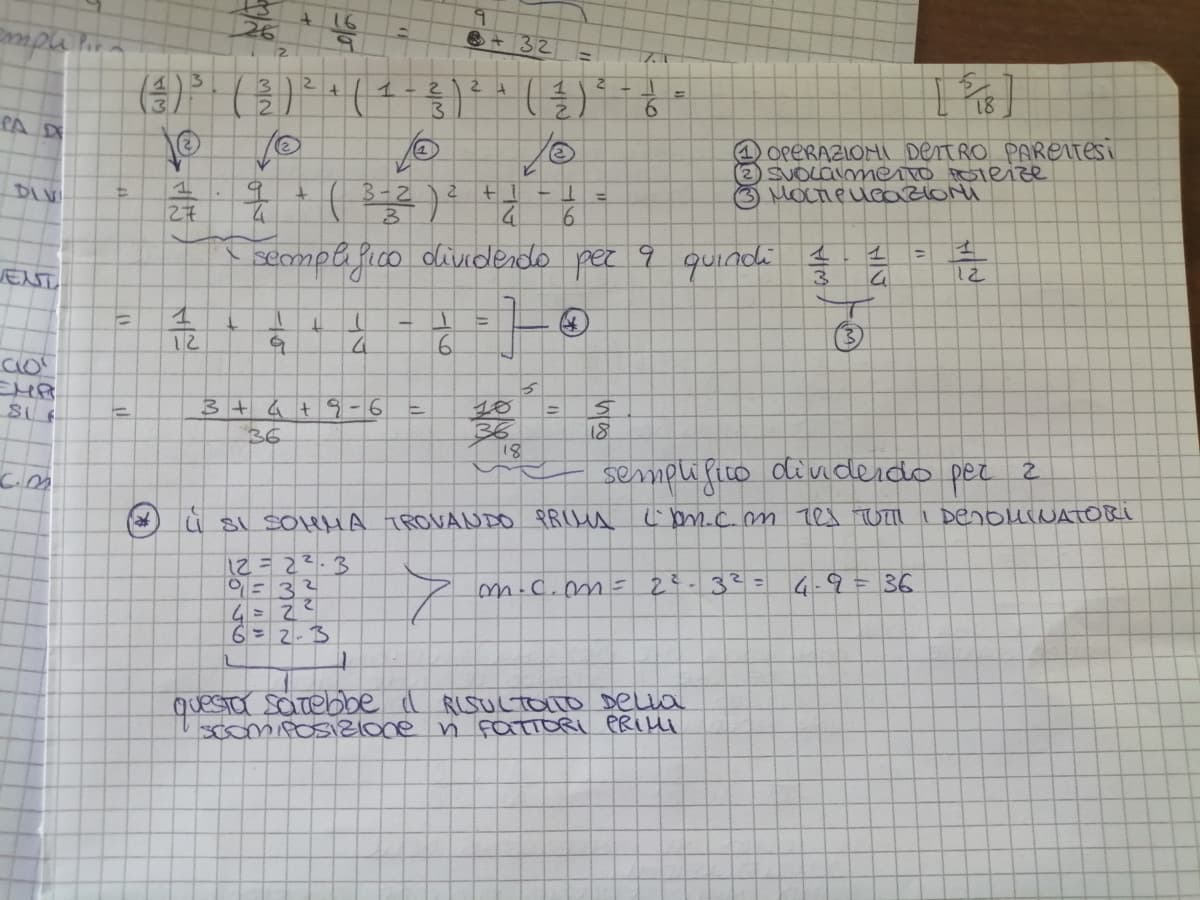 13/26 + 16/9 = 9 + 32 =
(1/3)³ · (3/2)² + (1 - 2/3)² + (1/2)² - 1/6 = [5/18]
② ② ① ②
① OPERAZIONI DENTRO PARENTESI
② SVOLGIMENTO POTENZE
③ MOLTIPLICAZIONI
= 1/27 · 9/4 + (3-2/3)² + 1/4 - 1/6 =
semplifico dividendo per 9 quindi 1/3 · 1/4 = 1/12
③
= 1/12 + 1/9 + 1/4 - 1/6 = ] *
= 3 + 4 + 9 - 6/36 = 10/36 5 18 = 5/18
semplifico dividendo per 2
* li SI SOMMA TROVANDO PRIMA L' m.c.m TUTTI I DENOMINATORI
12 = 2² · 3
9 = 3²
4 = 2²
6 = 2 · 3
m.c.m = 2² · 3² = 4 · 9 = 36
questa sarebbe il RISULTATO DELLA
SCOMPOSIZIONE in FATTORI PRIMI
DIVI
C.m